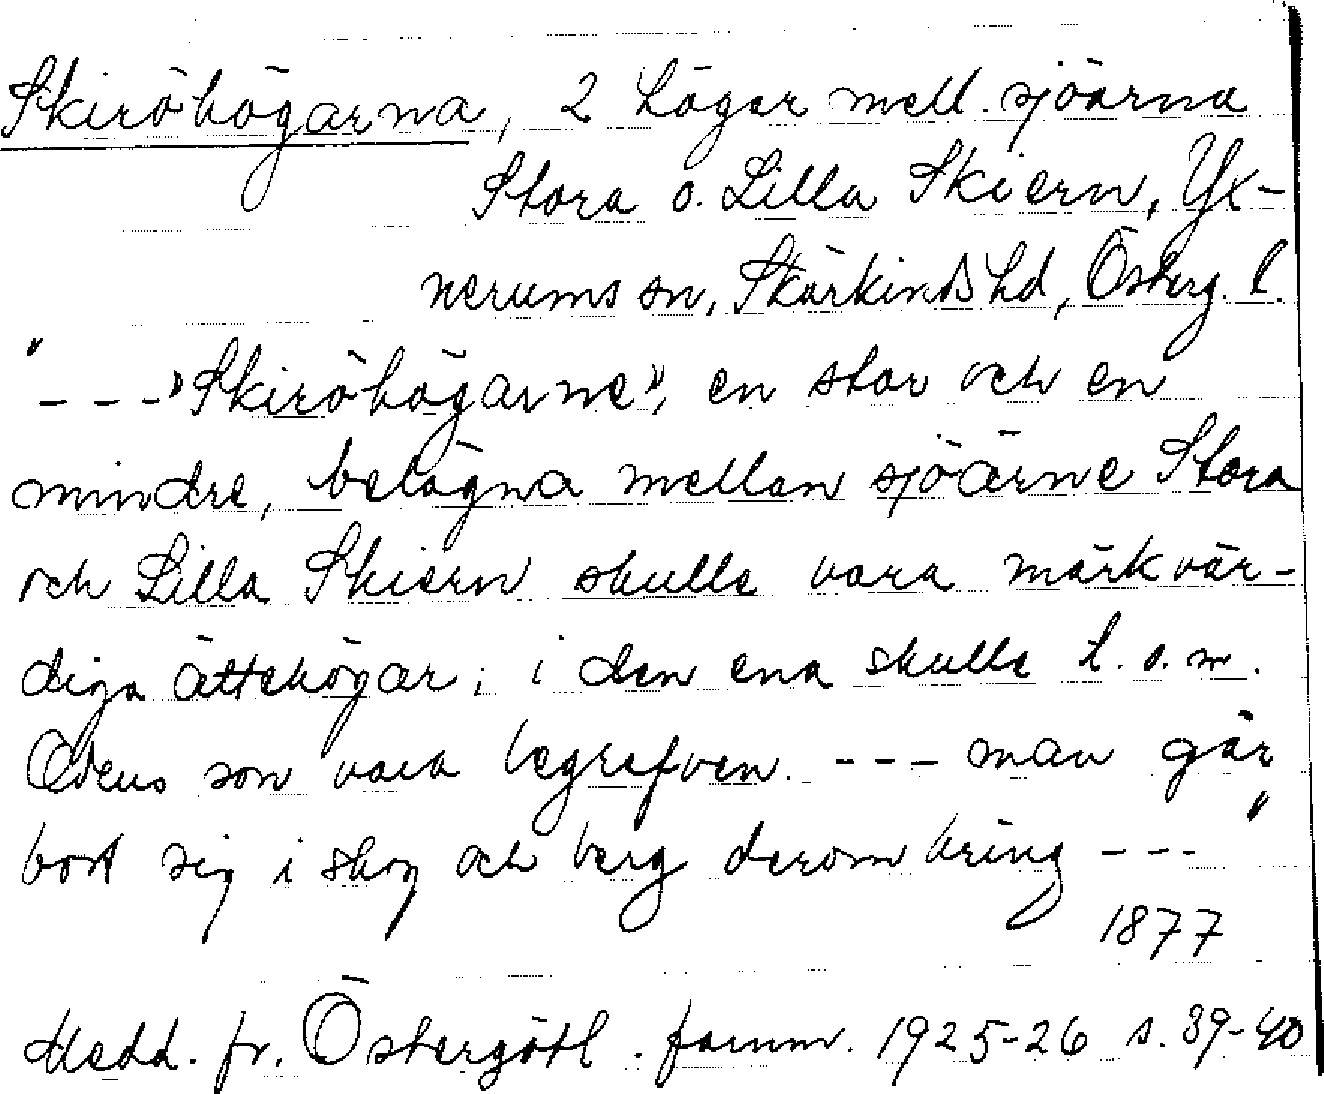 Skiröhögarna, 2 högar mell. sjöarna
Stora o. Lilla Skiern, Yx-
nerums sn, Skärkinds hd, Österg. l.
" - - - »Skiröhögarne», en stor och en
mindre, belägna mellan sjöärne Stora
och Lilla Skiern skulle vara märkvär-
diga ättehögar; i den ena skulle t. o. m.
Odens son vara begrafven. - - - man går
bort sig i skog och berg deromkring - - - "
1877
Medd. fr. Östergötl. fornm. 1925-26 s. 39-40